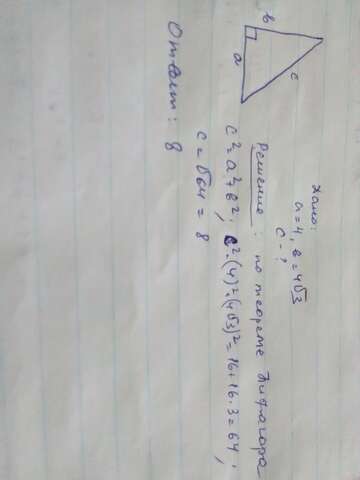 Дано:
a=4, b=4√3
c-?
b
a
c
Решение: по теореме Пифагора
c²=a²+b²; c²=(4)²+(4√3)²=16+16·3=64;
c=√64=8
Ответ: 8